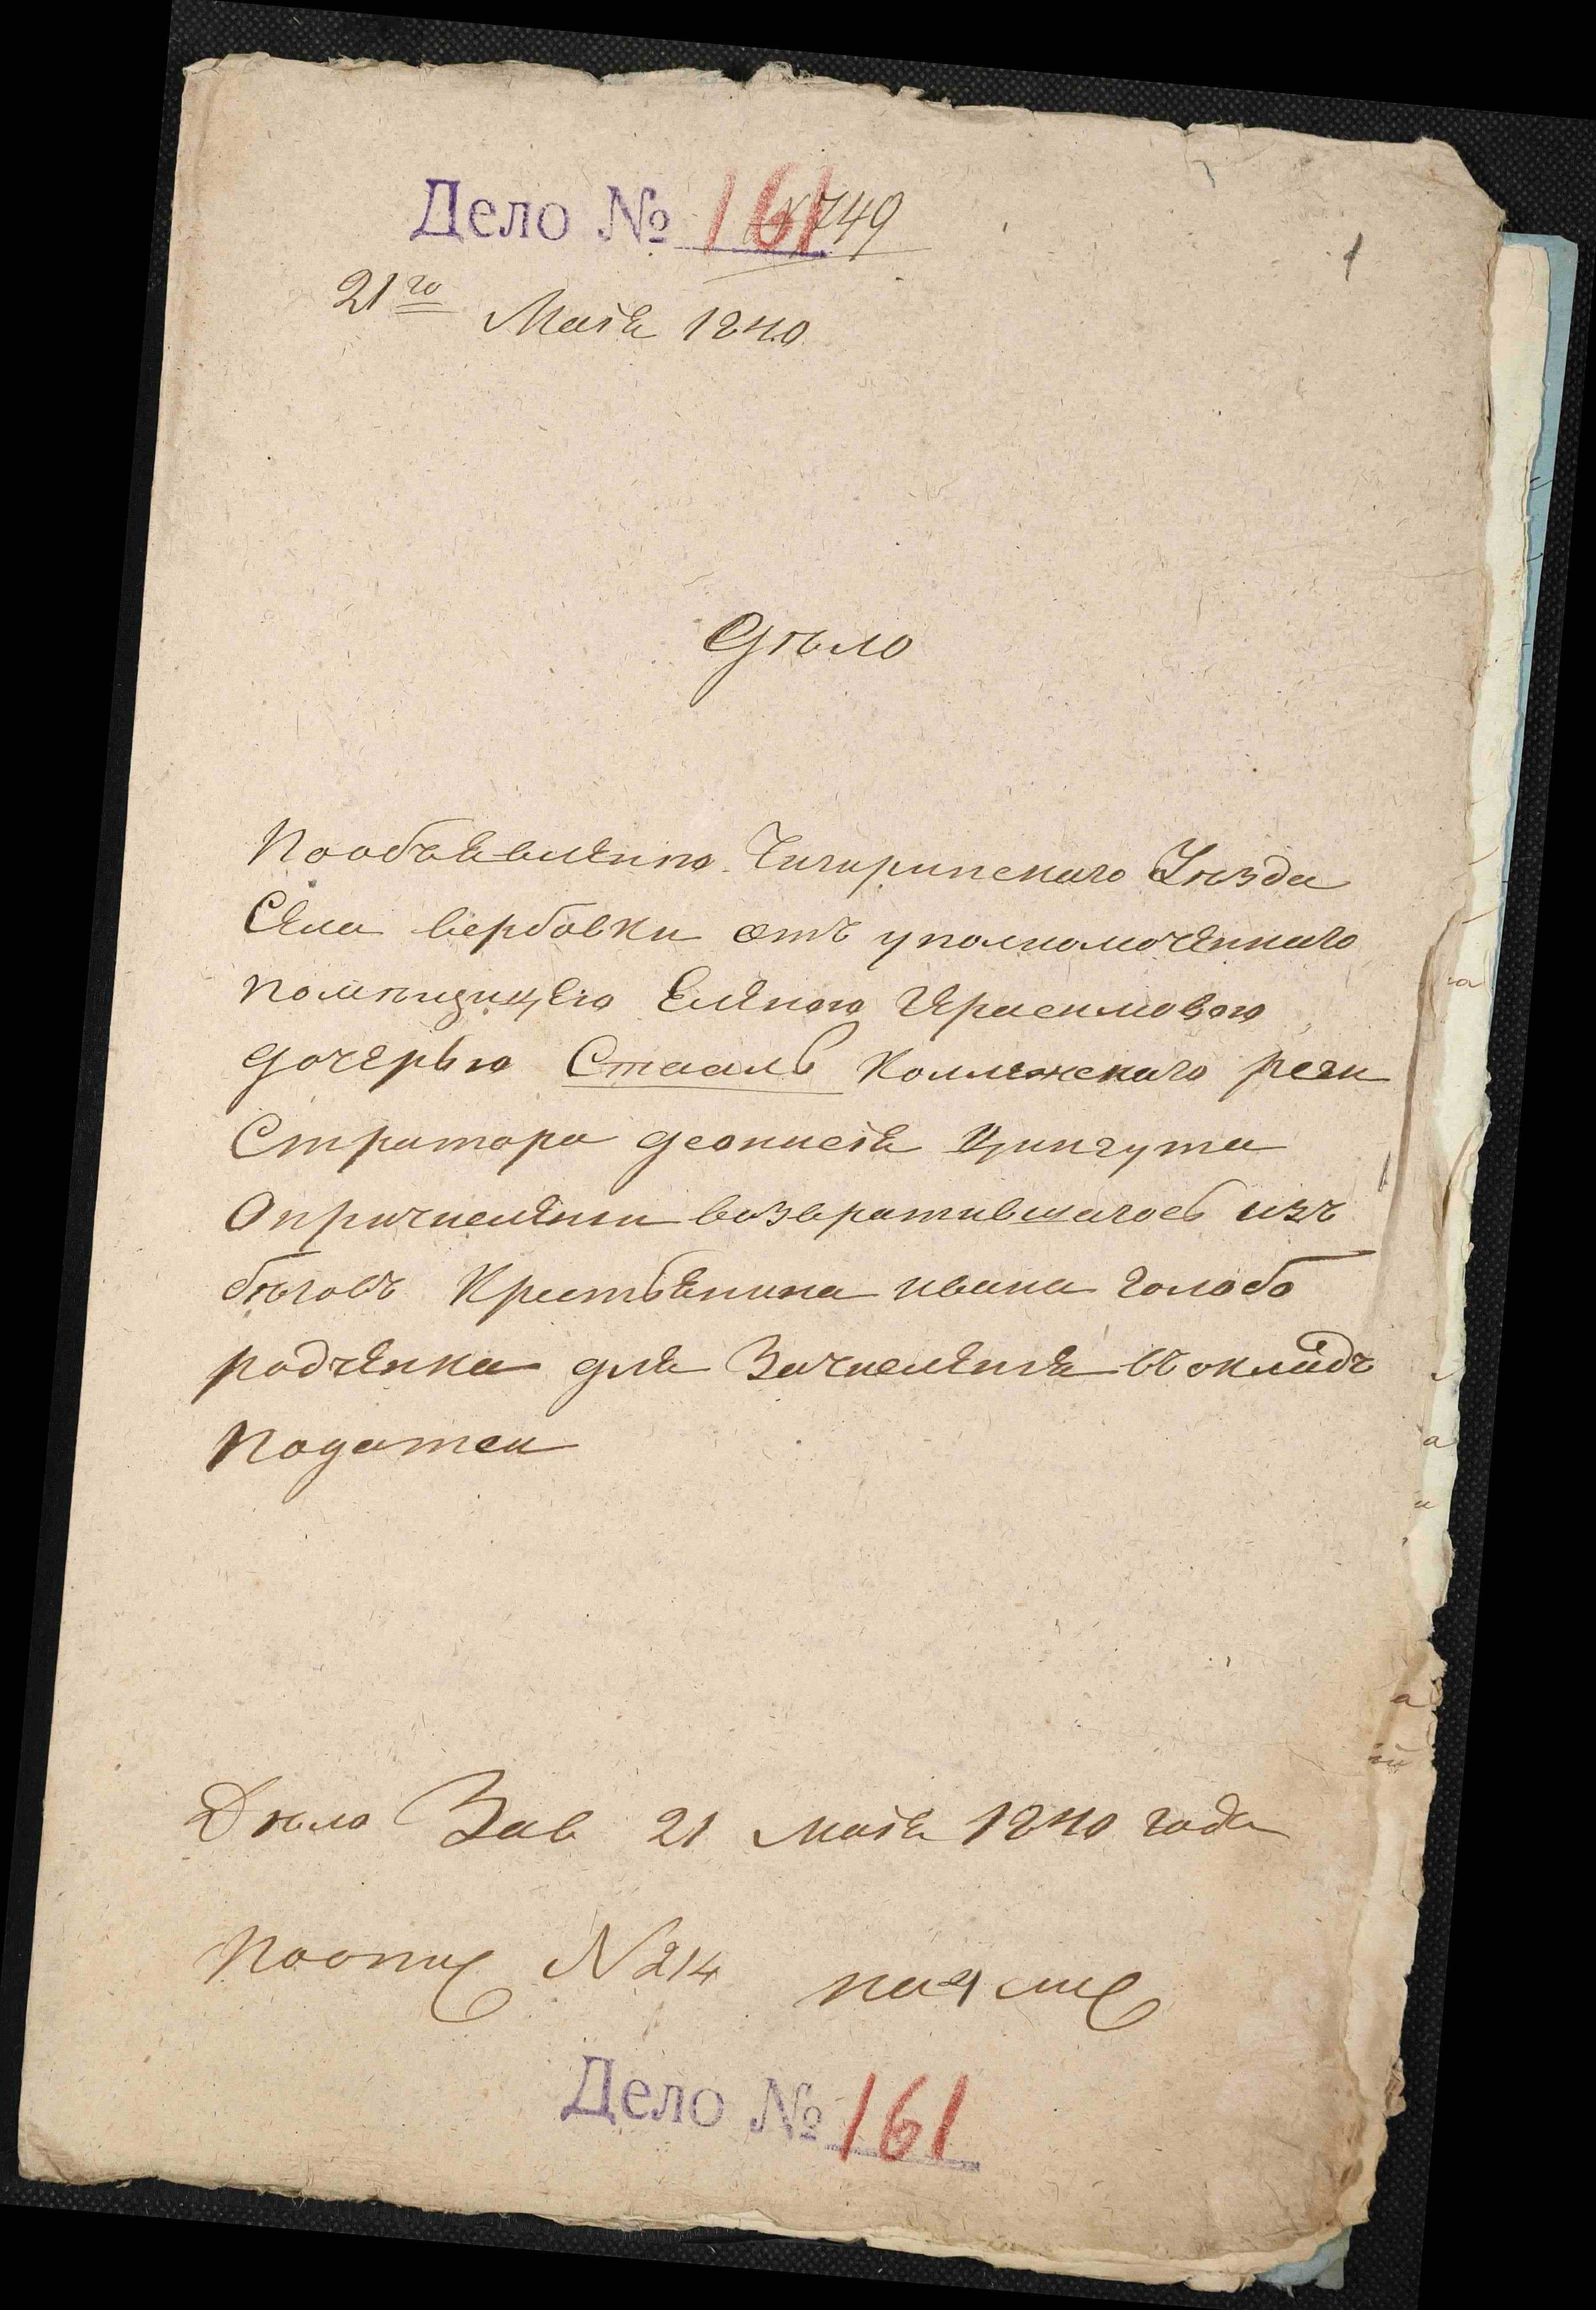 Дело № 161
749
1
21го Маія 1840
Дѣло
Пообъявленію Чигиринскаго Уѣзда
Села вербовки отъ уполномоченнаго
помѣщицею Еленою Герасимовою
дочерью Стааль Коллежскаго реги
Стратора деонисія Цингута
Опричисленіи возвратившагось изъ
бѣговъ Крестьянина ивана голобо
родченка для Зачисленія въ окладъ
податей
Дѣло Зав 21 маія 1840 года
Поопис N 214 на 4 лис
Дело № 161